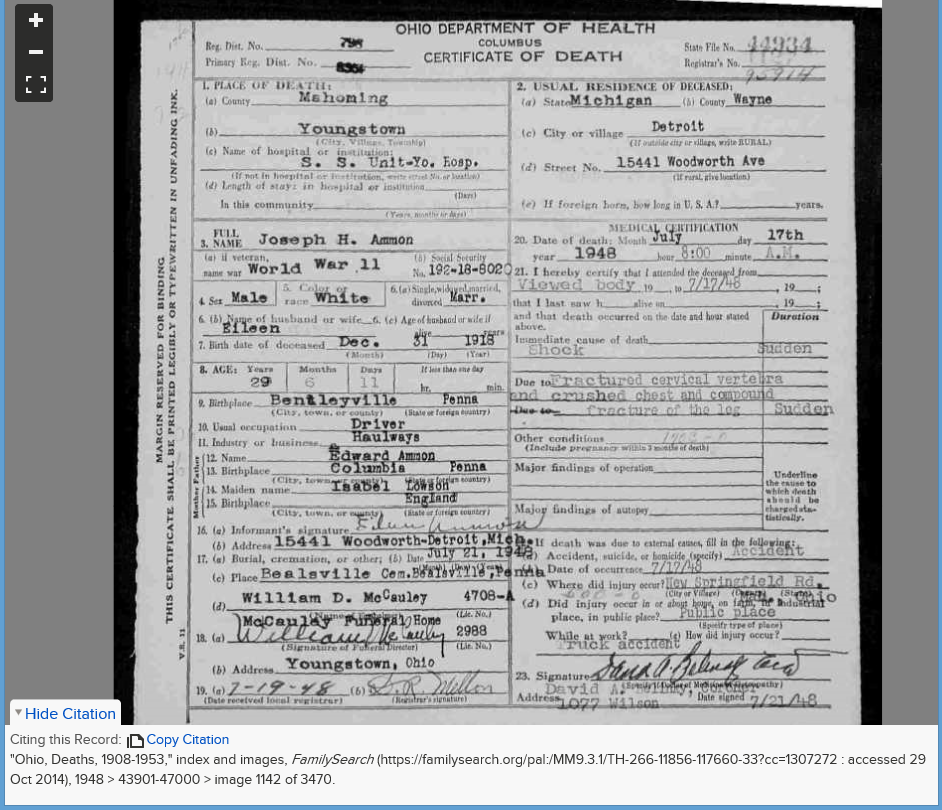 OHIO DEPARTMENT OF HEALTH
COLUMBUS
CERTIFICATE OF DEATH
Reg. Dist. No.
Primary Reg. Dist. No.
State File No. 44934
Registrar's No.
MARGIN RESERVED FOR BINDING
THIS CERTIFICATE SHALL BE PRINTED LEGIBLY OR TYPEWRITTEN IN UNFADING INK.
V.S. 11
1. PLACE OF DEATH:
(a) County Mahoning
(b) Youngstown
(City, Village, Township)
(c) Name of hospital or institution:
S. S. Unit-Yo. Hosp.
(If not in hospital or institution, write street No. or location)
(d) Length of stay: in hospital or institution
(Days)
In this community
(Years, months or days)
2. USUAL RESIDENCE OF DECEASED:
(a) State Michigan (b) County Wayne
(c) City or village Detroit
(If outside city or village, write RURAL)
(d) Street No. 15441 Woodworth Ave
(If rural, give location)
(e) If foreign born, how long in U. S. A.? years.
3. FULL NAME Joseph H. Ammon
(a) if veteran, name war World War 11
(b) Social Security No. 192-18-8020
4. Sex Male
5. Color or race White
6. (a) Single, widowed, married, divorced Marr.
6. (b) Name of husband or wife Eileen
6. (c) Age of husband or wife if alive years
7. Birth date of deceased Dec. 31 1918
(Month) (Day) (Year)
8. AGE: Years Months Days If less than one day
29 6 11 hr. min.
9. Birthplace Bentleyville Penna
(City, town, or county) (State or foreign country)
10. Usual occupation Driver
11. Industry or business Haulways
Father
12. Name Edward Ammon
13. Birthplace Columbia Penna
(City, town, or county) (State or foreign country)
Mother
14. Maiden name Isabel Lowson
15. Birthplace England
(City, town, or county) (State or foreign country)
16. (a) Informant's signature Eileen Ammon
(b) Address 15441 Woodworth-Detroit, Mich.
17. (a) Burial, cremation, or other; (b) Date July 21, 1948
(Month) (Day) (Year)
(c) Place Bealsville Cem. Bealsville, Penna
(d) William D. McCauley 4708-A
(Lic. No.)
McCauley Funeral Home
18. (a) William D. McCauley 2988
(Signature of Funeral Director) (Lic. No.)
(b) Address Youngstown, Ohio
19. (a) 7-19-48 (b)
(Date received local registrar) (Registrar's signature)
MEDICAL CERTIFICATION
20. Date of death: Month July day 17th
year 1948 hour 8:00 minute A.M.
21. I hereby certify that I attended the deceased from
Viewed body 19 , to 7/17/48 , 19 ;
that I last saw h alive on , 19 ;
and that death occurred on the date and hour stated above.
Duration
Immediate cause of death
Shock Sudden
Due to Fractured cervical vertebra
and crushed chest and compound
Due to fracture of the leg Sudden
Other conditions
(Include pregnancy within 3 months of death)
Major findings of operation
Major findings of autopsy
Underline the cause to which death should be charged statistically.
If death was due to external causes, fill in the following:
(a) Accident, suicide, or homicide (specify) Accident
(b) Date of occurrence 7/17/48
(c) Where did injury occur? New Springfield Rd.
(City or Village) (County) (State)
Ohio
(d) Did injury occur in or about home, on farm, in industrial
place, in public place? Public place
(Specify type of place)
While at work? (e) How did injury occur?
Truck accident
23. Signature
David A. Belinky, Coroner
Address 1077 Wilson Date signed 7/21/48
Hide Citation
Citing this Record: Copy Citation
"Ohio, Deaths, 1908-1953," index and images, FamilySearch (https://familysearch.org/pal:/MM9.3.1/TH-266-11856-117660-33?cc=1307272 : accessed 29
Oct 2014), 1948 > 43901-47000 > image 1142 of 3470.